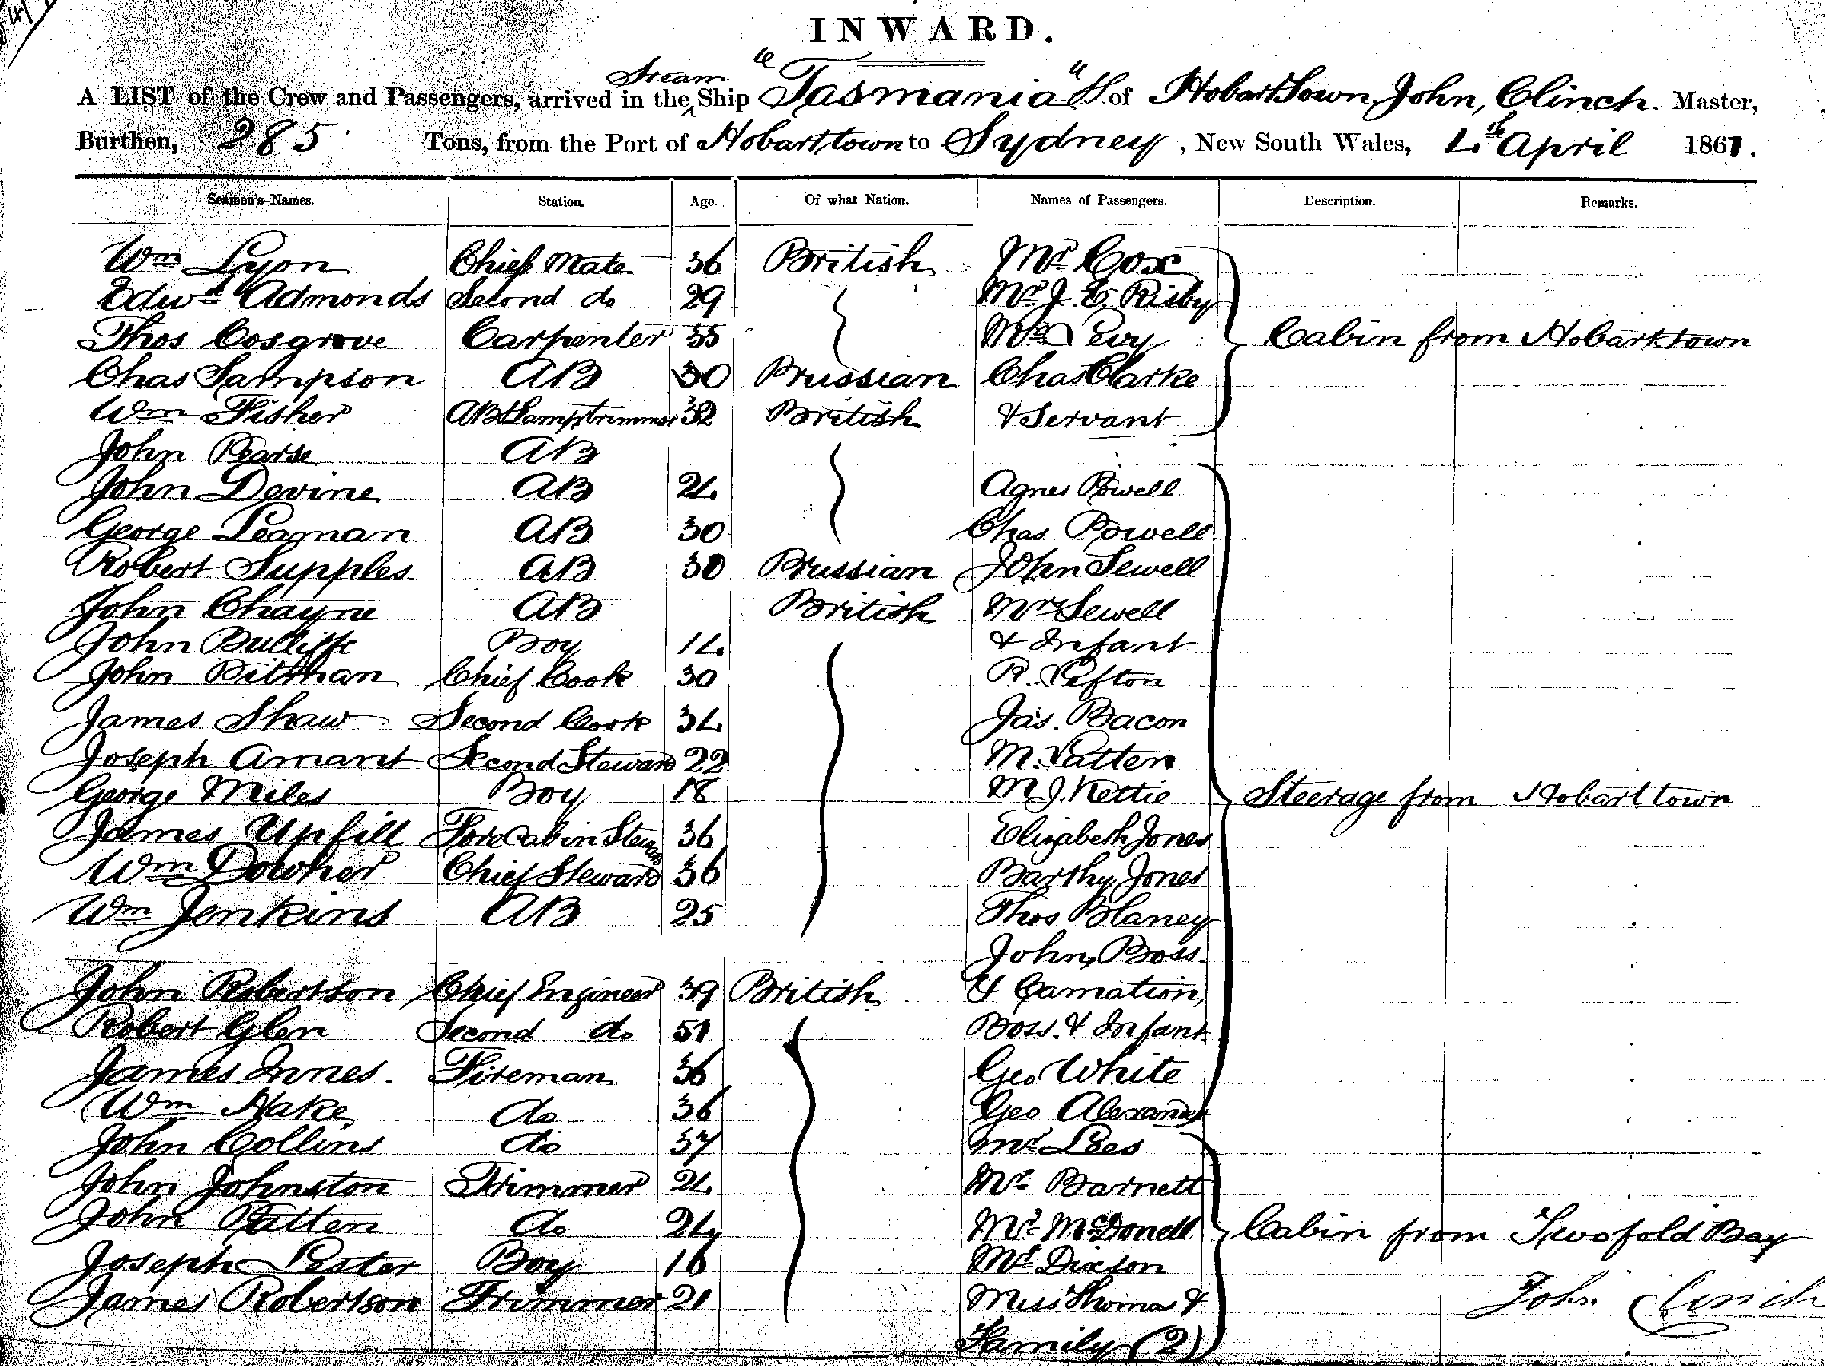 INWARD.
A LIST of the Crew and Passengers, arrived in the Steam Ship "Tasmania" S. of Hobart Town, John, Clinch. Master,
Burthen, 285 Tons, from the Port of Hobart town to Sydney, New South Wales, 4th April 1861.
Seamen's Names. Station. Age. Of what Nation. Names of Passengers. Description. Remarks.
Wm Lyon Chief Mate 36 British Mr Cox
Edwd Admonds Second do 29 Mr J. E. Risby
Thos Cosgrove Carpenter 55 Cabin from Hobarktown
Chas Sampson AB 30 Prussian Chas Clarke
Wm Fisher AB & Lamptrimmer 32 British & Servant
John Pearse AB
John Devine AB 24 Agnes Powell
George Leaman AB 30 Chas Powell
Robert Supples AB 30 Prussian John Sewell
John Chayne AB British Mrs Sewell
John Boy 14 & Infant
John Pitman Chief Cook 30 R.
James Shaw Second Cook 34 Jas. Bacon
Joseph Amant Second Steward 22 M. Patten
George Miles Boy 18 M J. Nettie Steerage from Hobart town
James Upfill Fore Cabin Steward 36 Elizabeth Jones
Wm Dowher Chief Steward 36 Barthy Jones
Wm Jenkins AB 25 Thos Blaney
John Boss
John Robertson Chief Engineer 39 British & Carnation,
Robert Glen Second do 51 Boss & Infant
James Innes. Fireman 36 Geo White
Wm Nake do 36 Geo Alexander
John Collins do 37 Mr Lees
John Johnston Trimmer 24 Mr Barnett
John Patten do 24 Mr McDonell Cabin from Twofold Bay
Joseph Boy 16 Mr Dixson
James Robertson Trimmer 21 Miss Thomas & John Clinch
Family (2)